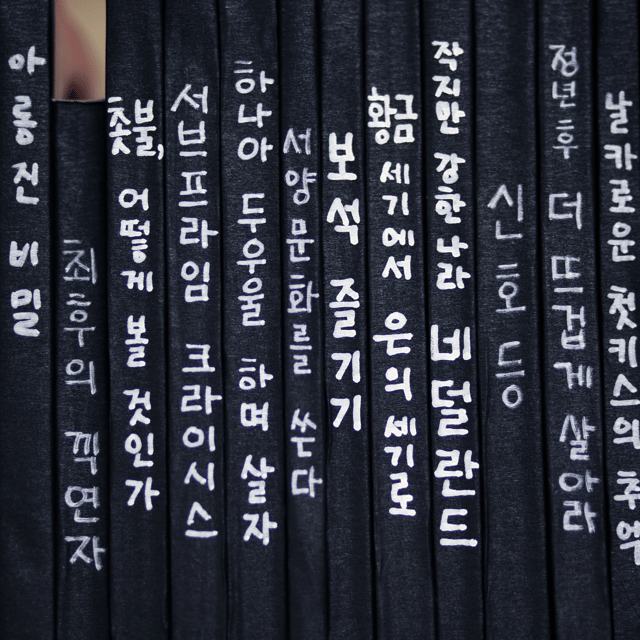 아롱진 비밀
최후의 끽연자
촛불, 어떻게 볼 것인가
서브프라임 크라이시스
하나아 두우울 하며 살자
서양문화를 쏜다
보석 즐기기
황금 세기에서 은의 세기로
작지만 강한나라 네덜란드
신호등
정년후 더 뜨겁게 살아라
날카로운 첫키스의 추억